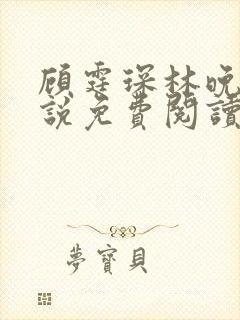 顾霆琛林晚
說免費閱讀
夢寶貝